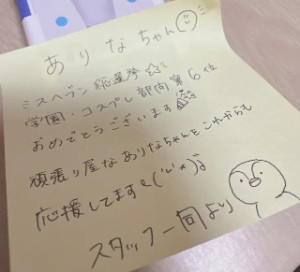 ありなちゃん
ミスヘブン総選挙☆
学園・コスプレ部門第6位
おめでとうございます
頑張り屋なありなちゃんをこれからも
応援してます
スタッフ一同より